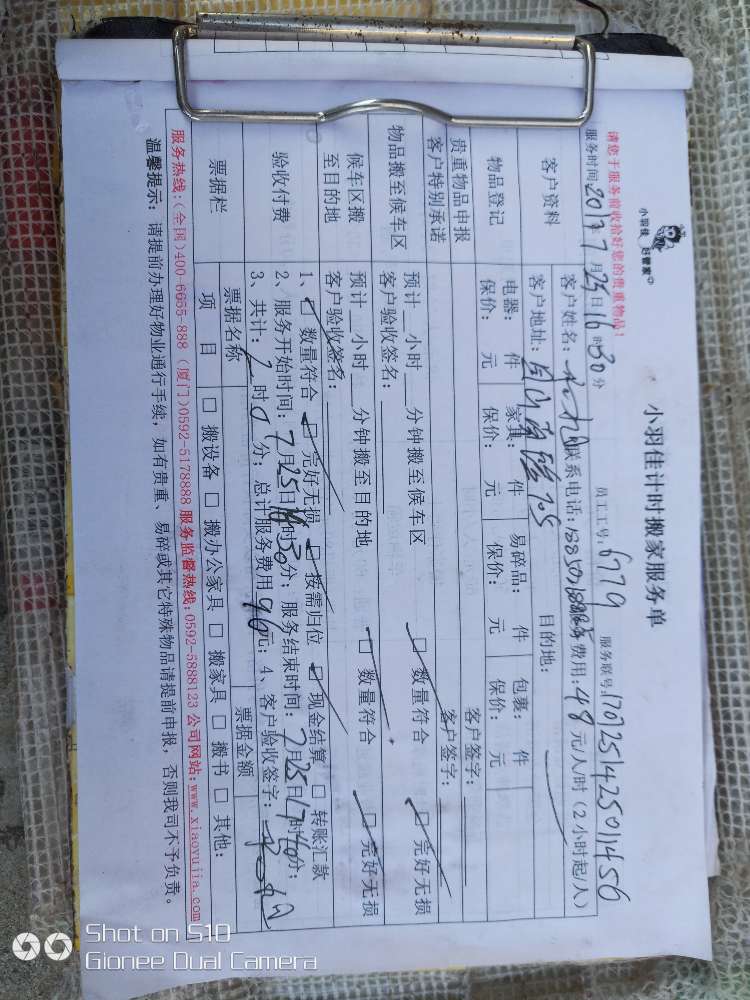 小羽佳 好管家
小羽佳计时搬家服务单
请您于服务前收拾好您的贵重物品!
服务时间:2017年7月25日16时30分 员工工号:6779 服务联号:170725142501456
客户资料
客户姓名: 联系电话: 服务费用:48元/人/时(2小时起/人)
客户地址: 705 目的地:
物品登记
电器: 件 家具: 件 易碎品: 件 包裹: 件
保价: 元 保价: 元 保价: 元 保价: 元
贵重物品申报 客户签字:
客户特别承诺 客户签字:
物品搬至候车区
预计 小时 分钟搬至候车区 □ 数量符合 □ 完好无损
客户验收签名:
候车区搬至目的地
预计 小时 分钟搬至目的地 □ 数量符合 □ 完好无损
客户验收签名:
验收付费
1、□ 数量符合 □ 完好无损 □ 按需归位 □ 现金结算 □ 转账汇款
2、服务开始时间:7月25日16时30分;服务结束时间:7月25日17时40分;
3、共计:2时0分;总计服务费用96元;4、客户验收签字:
票据栏
票据名称 票据金额
项 目 □ 搬设备 □ 搬办公家具 □ 搬家具 □ 搬书 □ 其他:
服务热线:(全国)400-6655-888 (厦门)0592-5178888 服务监督热线:0592-5888123 公司网站:www.xiaoyujia.com
温馨提示:请提前办理好物业通行手续,如有贵重、易碎或其它特殊物品请提前申报,否则我司不予负责。
Shot on S10
Gionee Dual Camera